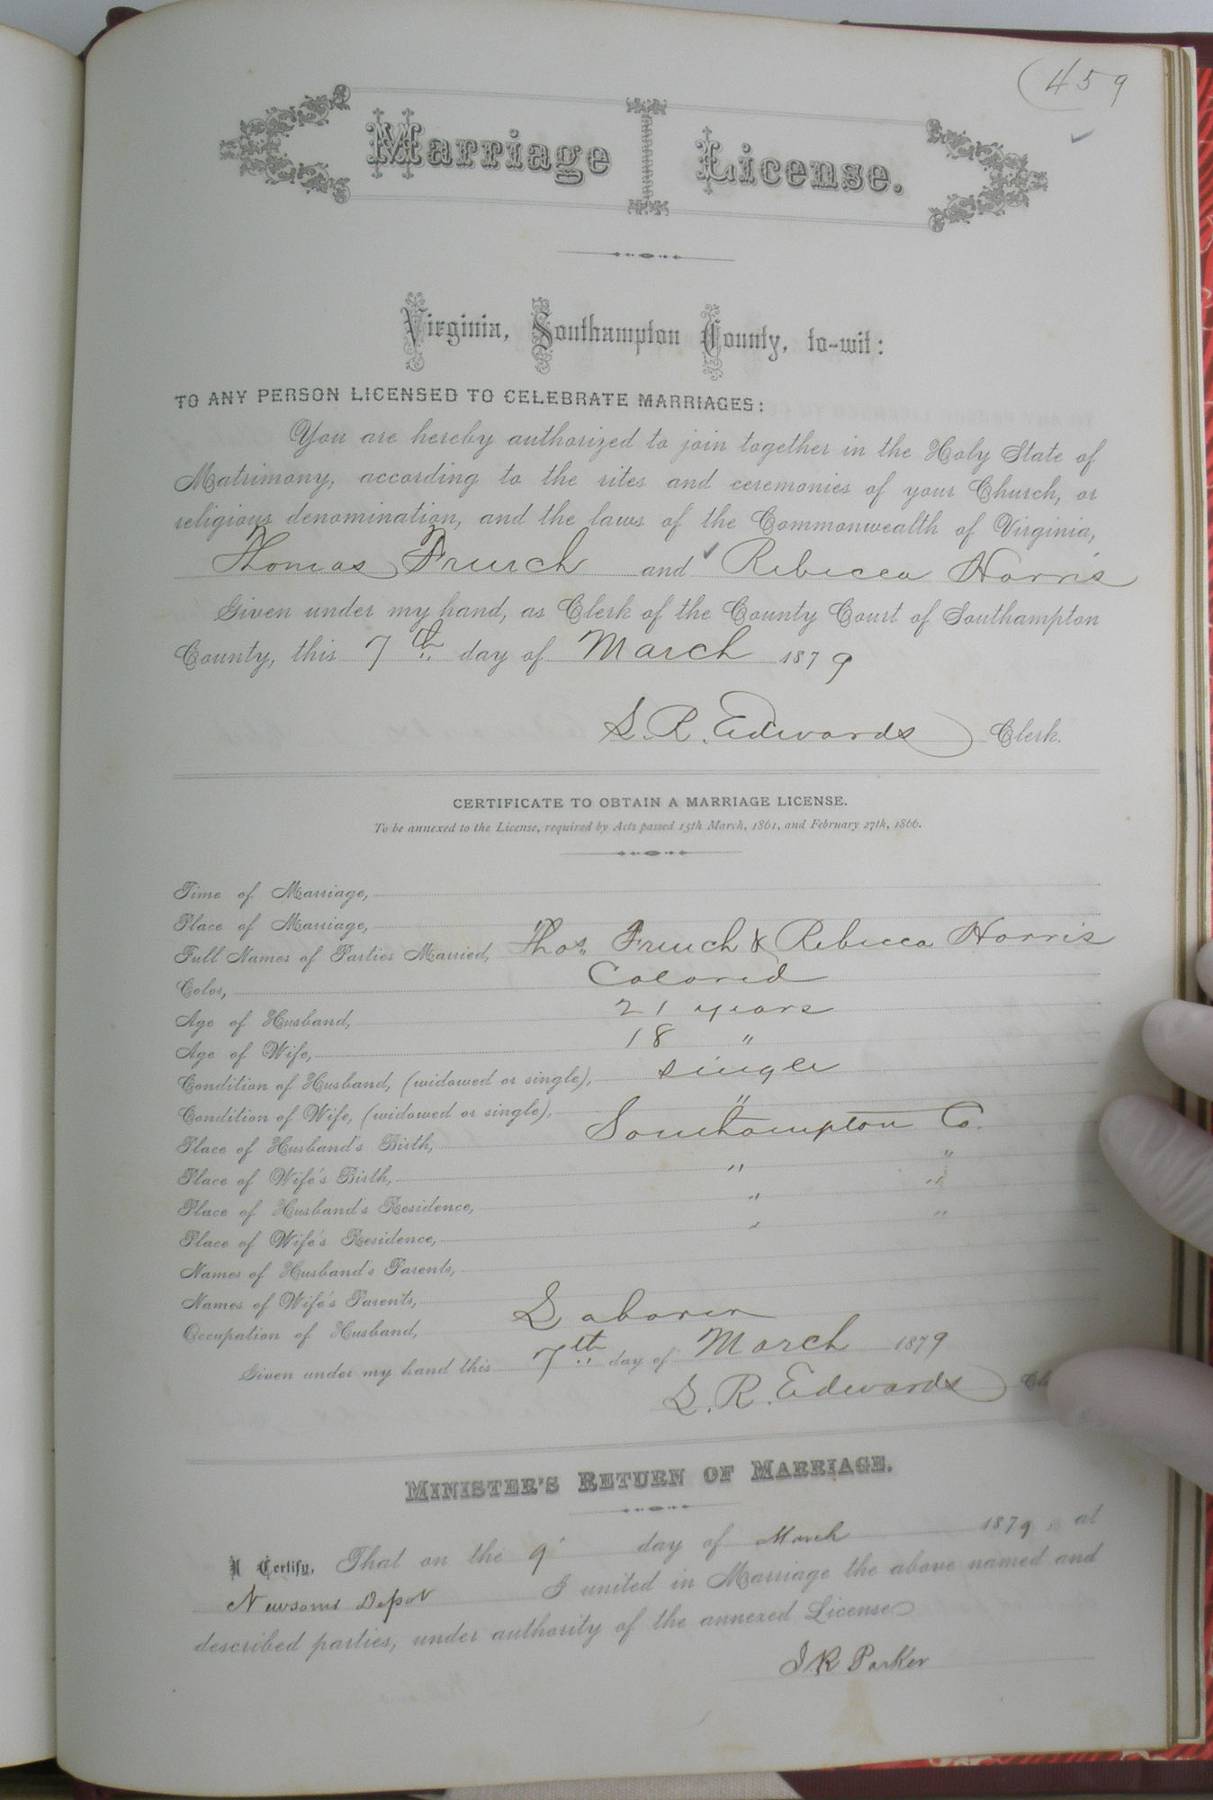 459
Marriage License.
Virginia, Southampton County, to-wit:
TO ANY PERSON LICENSED TO CELEBRATE MARRIAGES:
You are hereby authorized to join together in the Holy State of
Matrimony, according to the rites and ceremonies of your Church, or
religious denomination, and the laws of the Commonwealth of Virginia,
Thomas French and Rebecca Harris
Given under my hand, as Clerk of the County Court of Southampton
County, this 7th day of March 1879
L. R. Edwards Clerk.
CERTIFICATE TO OBTAIN A MARRIAGE LICENSE.
To be annexed to the License, required by Acts passed 15th March, 1861, and February 27th, 1866.
Time of Marriage,
Place of Marriage,
Full Names of Parties Married, Thos French & Rebecca Harris
Color, Colored
Age of Husband, 21 years
Age of Wife, 18 "
Condition of Husband, (widowed or single), single
Condition of Wife, (widowed or single), "
Place of Husband's Birth, Southampton Co.
Place of Wife's Birth, " "
Place of Husband's Residence, " "
Place of Wife's Residence, " "
Names of Husband's Parents,
Names of Wife's Parents,
Occupation of Husband, Laborer
Given under my hand this 7th day of March 1879
L. R. Edwards
MINISTER'S RETURN OF MARRIAGE.
I Certify, That on the 9 day of March 1879, at
Newsoms Depot I united in Marriage the above named and
described parties, under authority of the annexed License
J R Parker